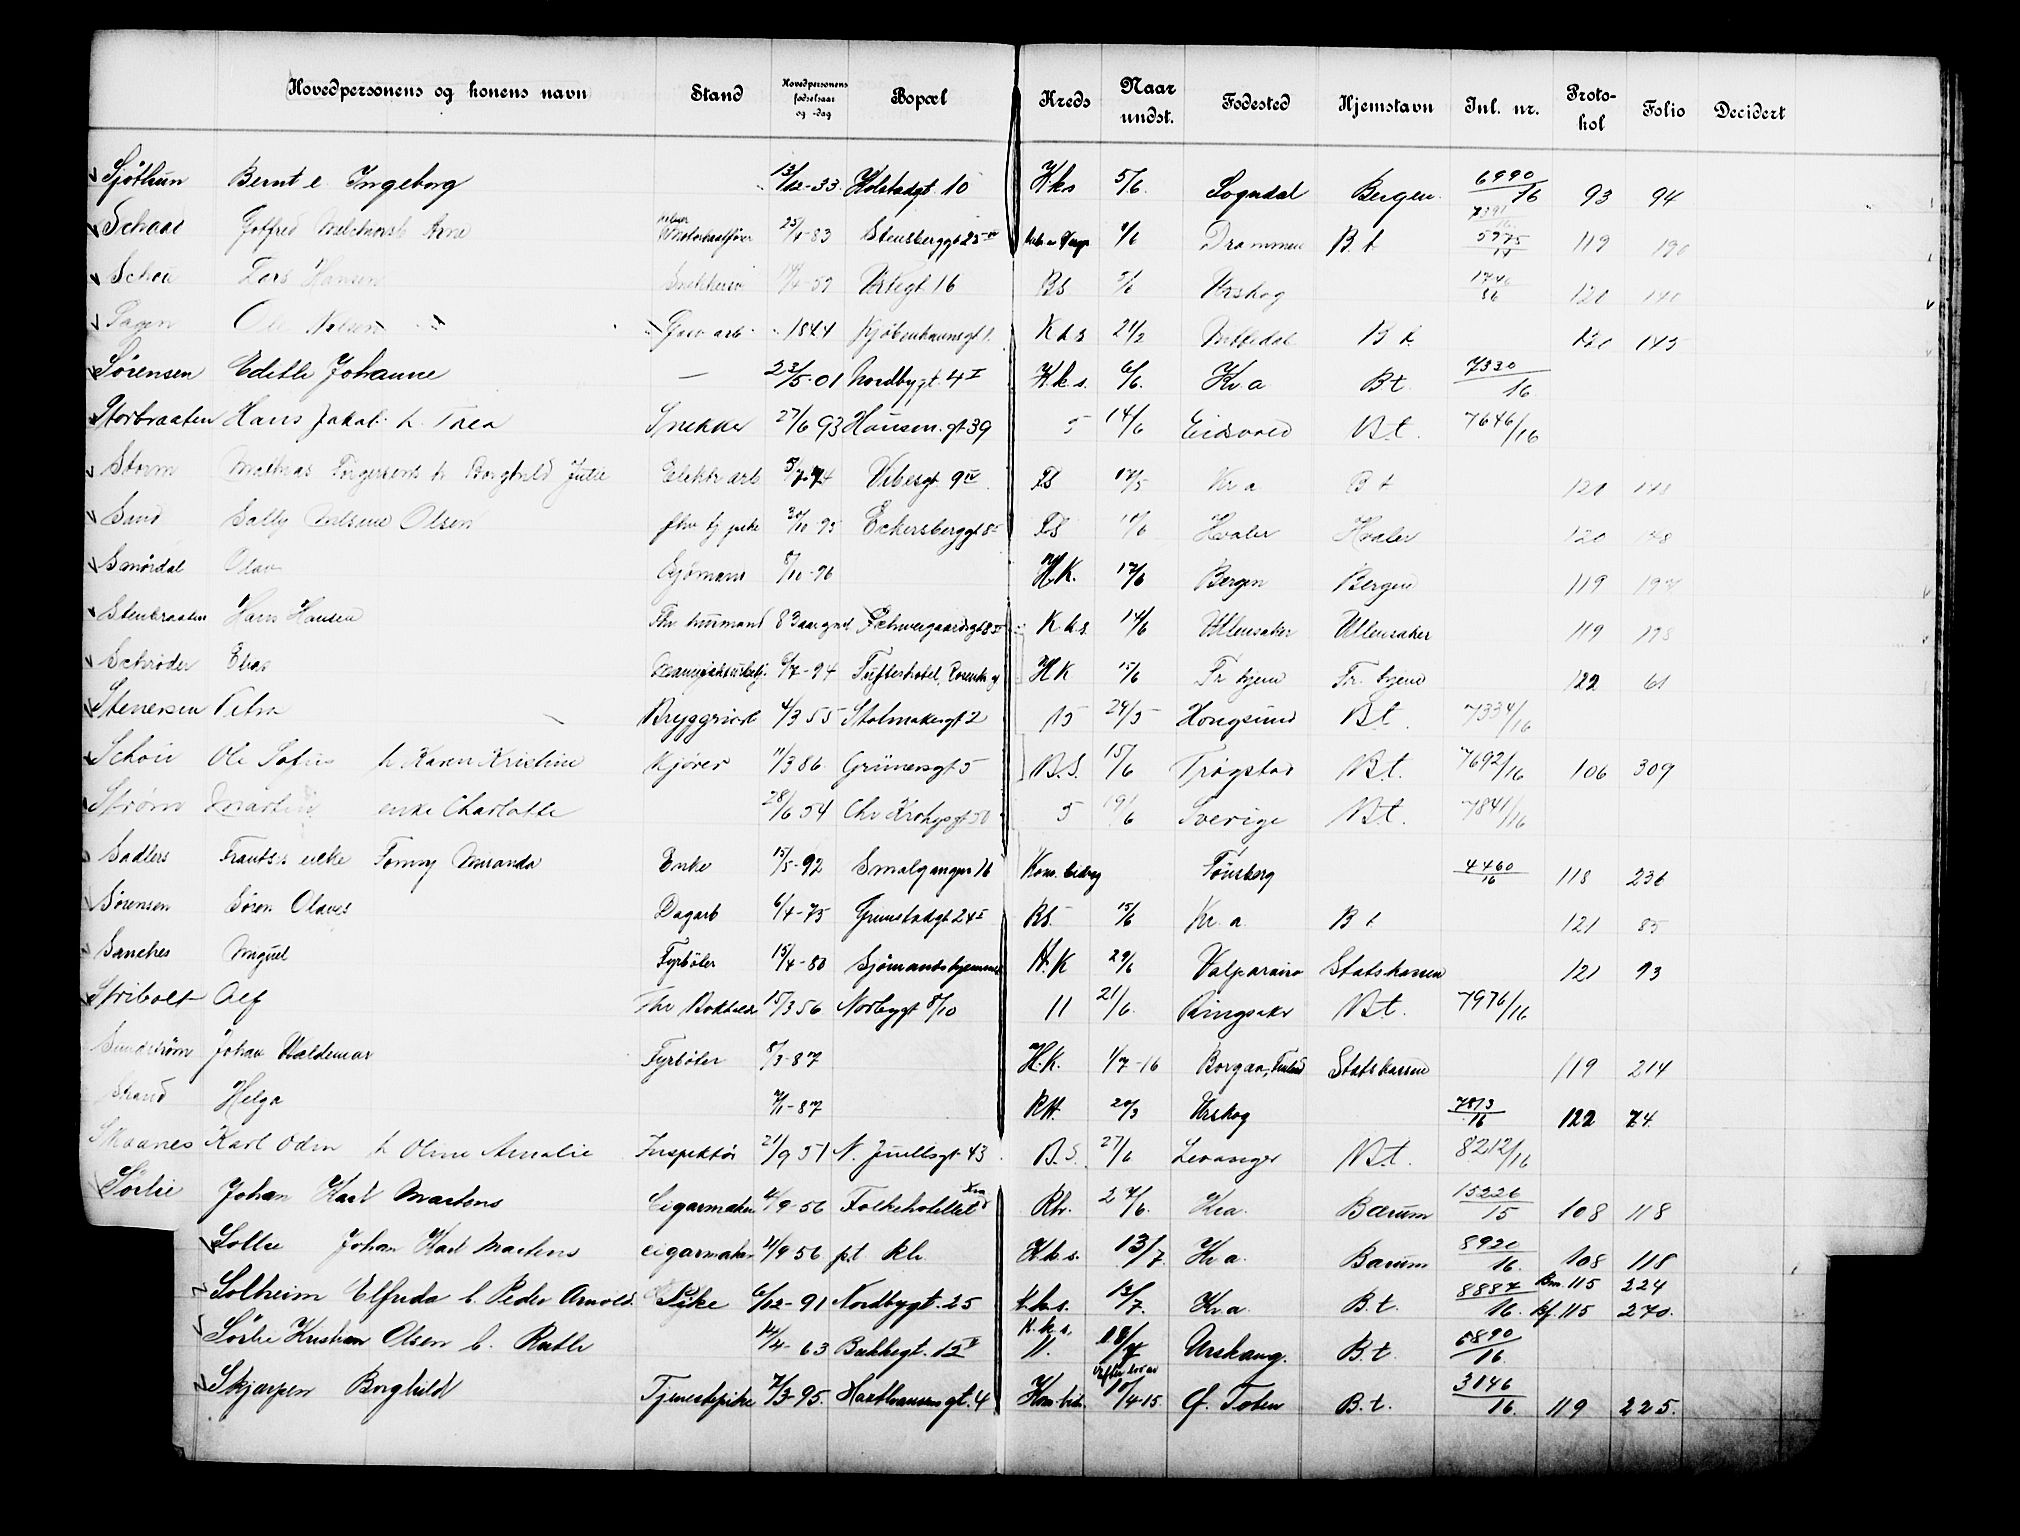 Hovedpersonens og konens navn Stand Hovedpersonens fødselsaar og -dag Bopæl Kreds Naar undst. Fødested Hjemstavn Inl. nr. Protokol Folio Decidert
Sjøthun Bernt e. Ingeborg 13/12-33 Holstadgt. 10 K.k.s 5/6. Sogndal Bergen 6990/16 93 94
Schaar Gotfred 25/1-83 Stensberggt 25 Drammen B.t. 5975 119 190
Schou Lars Hansen Snekkersv -59 16 BS Urskog 120 140
Sagen Ole Nelsen Grov arb 1844 Kjøbenhavnsgt 1. K k s 21/2 B t. 120 143
Sørensen Edith Johanne — 23/5-01 Nordbygt. 4 I K.k.s. 6/6. Kr.a B.t. 7330/16
Storbraaten Hans Jakob h. Thea Snekker 27/6 93 Hausm.gt 39 5 14/6 Eidsvold B.t. 7646/16
Storm Mathias Torgersen h Borghild Julie Elektr arb 5/7-74 Vibesgt. 9 IV FS 17/5 Kr a B t 120 148
Sand Sally Nelsine Olsen fhv tj pike 30/10-95 Eckersberggt 8 FS Hvaler Hvaler 120 148
Smørdal Olav Sjømand 8/10-96 H.K. 17/6 Bergen Bergen 119 197
Stenbraaten Hans Hansen Fhv 83 aar gml. Schweigaardsgt 85 K k s. 14/6 Ullensaker Ullensaker 119 198
Schrøder Elias 6/7-94 Tufteshotel, Rosenk gt H K 15/6 Tr hjem Tr. hjem 122 61
Stenersen Petra Bryggriarb 4/3 55 Stolmakergt 2 15 24/5 Hougsund B.t. 7334/16
Schou Ole Sofus h. Karen Kristine Kjører 11/3 86 Grünersgt 5 B.S. 15/6 Trøgstad B.t. 7692/16 106 309
Strøm Martin enke Charlotte 28/6 54 Chr Krohgsgt 50 5 19/6 Sverige B.t. 7841/16
Sadlers Frantses enke Fanny Miranda Enke 15/5-92 Smalgangen 16 Kom. bidrag Tønsberg 4460/16 118 236
Sørensen Søren Olaves Dagarb 6/4-75 Grimstadgt 24 I BS. 15/6 Kr. a. B t 121 85
Sanches Miguel Fyrbøter 15/4-80 Sjømandshjemmet H.K 29/6 Valparaiso Statskassen 121 93
Stribolt Alf Fhv Bokholder 15/3 56 Norbygt 8/10 11 21/6. Ringsaker B.t. 7976/16
Sundstrøm Johan Valdemar Fyrbøter 8/3-87 H.K. 1/7-16 Borgaa, Finland Statskassen 119 214
Strand Helga 7/1-87 RH. 20/3 Urskog 7813/16 122 74
Skaanes Karl Odin h Oline Amalie Inspektør 21/9 51 N. Juellsgt 43 B.S. 27/6 Levanger B.t. 8212/16
Sørlie Johan Karl Martens Cigarmaker 4/9-56 Folkehotellet Kra Rh. 27/6. Kra. Bærum 15226/15 108 118
Sollie Johan Karl Martens Cigarmaker 4/9 56 p.t. Rh. K.k.s. 13/7. Kr.a Bærum 8920/16. 108 118
Solheim Elfrida h. Peder Arnold. Pike 6/12-91 Nordbygt. 25 K.k.s. 13/7. Kr.a B.t. 8887/16. Bm. 115 224 Kf. 115 270.
Sørlie Kristian Olsen h. Ruth 14/4-63 Bakkegt. 12 K.k.s. 11. 18/7 Urskaug. B.t. 6890/16.
Skjærpen Borghild Tjenestepike 7/3-95. Markveien gt. 4 Kom. bid. 10/4-15. Ø. Toten B.t. 3146/16. 119 225.